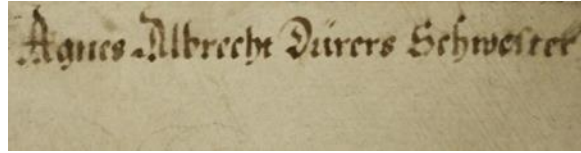 Agnes Albrecht Dürers Schwester